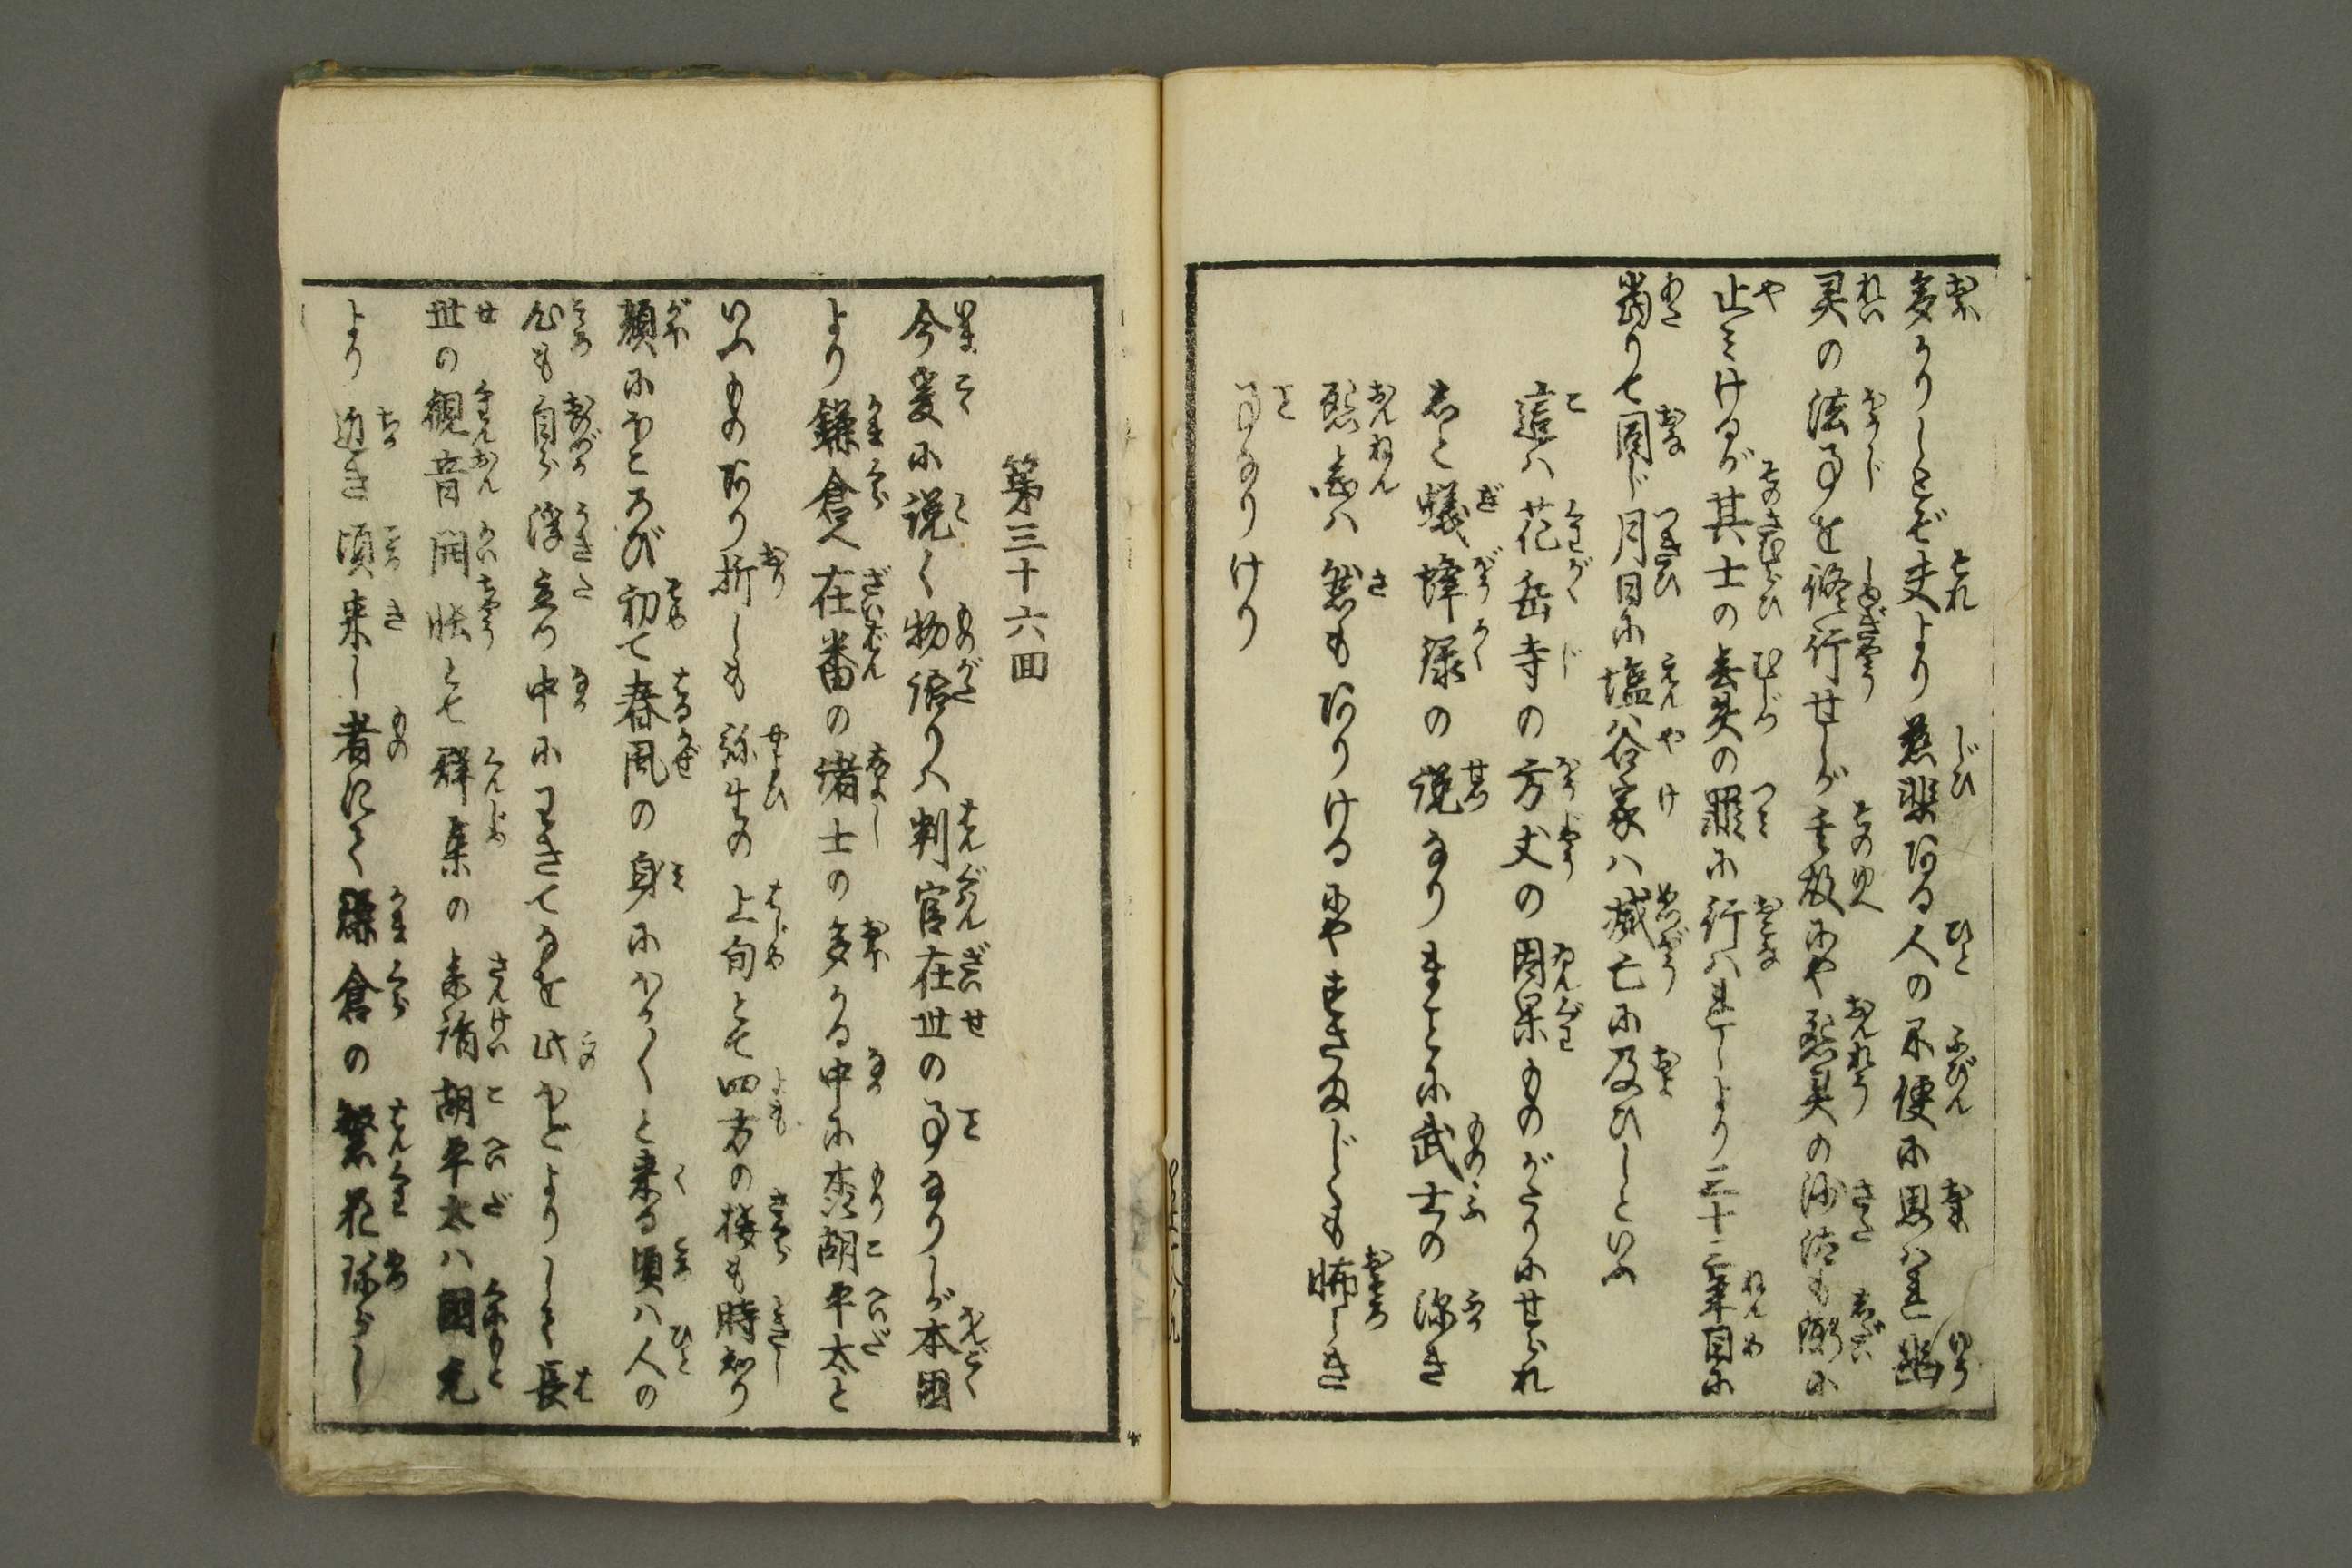 多かりしとぞ夫より慈悲ある人の不便に思はれ幽
灵の法事を修行せしが其故にや怨灵の沙汰も漸に
止みけるが其士の無実の罪に行はれしより三十三年目に
當りて同じ月日に塩谷家は滅亡に及びしといふ
這は花岳寺の方丈の因果ものがたりにせられ
しと蟻蜂録の説なりまことに武士の深き
怨念は然もありけるにやすさまじくも怖しき
事なりけり
第三十六回
今爰に説く物語りは判官在世の事なりしが本国
より鎌倉へ在番の諸士の多かる中に森胡平太と
いふものあり折しも弥生の上旬とて四方の桜も時知り
顔にほころび初て春風の身にほか〳〵と来る頃は人の
心も自ら浮立つ中にわきてなを此ほどよりして長
世の観音開帳とて群集の参詣胡平太は國元
より近き頃来し者にて鎌倉の繁花珍らし